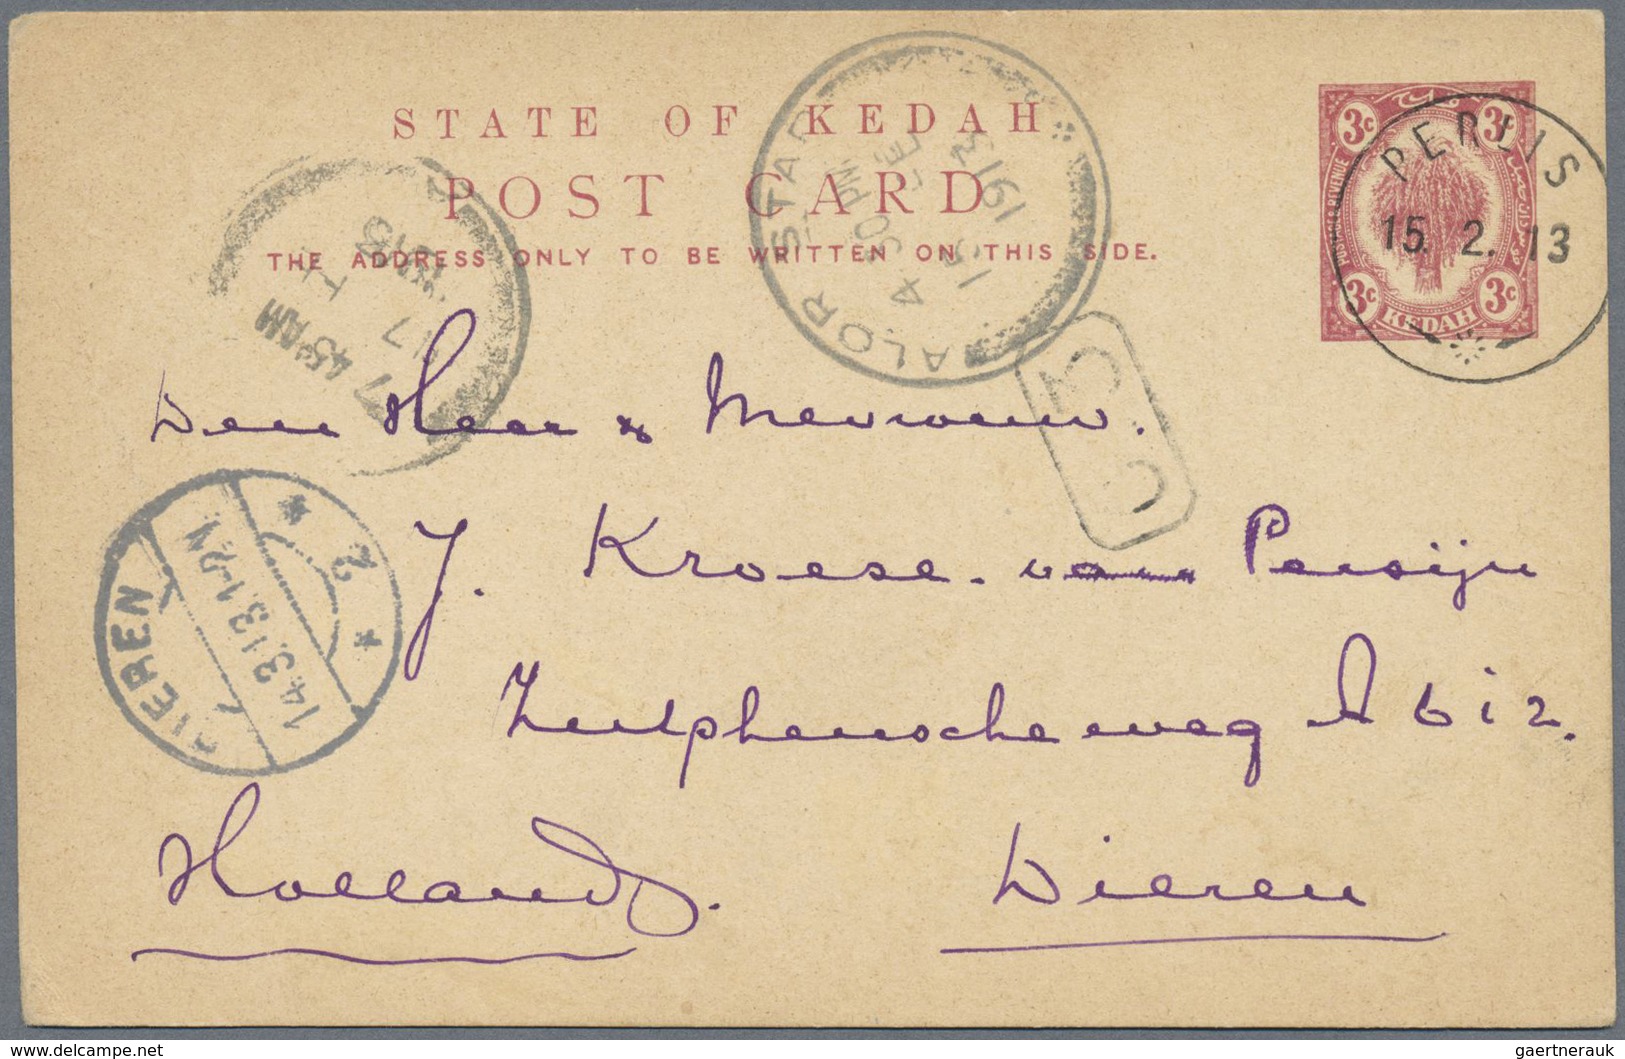 STATE OF KEDAH
POST CARD
THE ADDRESS ONLY TO BE WRITTEN ON THIS SIDE.
3c 3c
POSTAGE & REVENUE
3c 3c
KEDAH
PERLIS
15. 2. 13
ALOR STAR
4 30 PM
15 FE
1913
7 45 AM
17
1913
DIEREN
14.3.13.1-2N
2
Den Heer & Mevrouw.
J. Kroese - van Persijn
Zutphenscheweg A 612.
Dieren
Holland.
www.delcampe.net
gaertnerauk